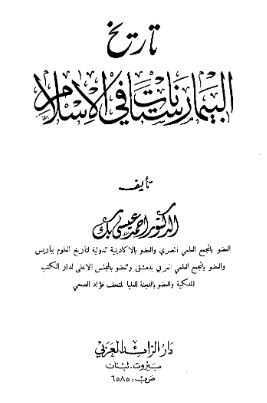 تاريخ
البيمارستانات في الإسلام
تأليف
الدكتور احمد عيسى بك
العضو بالمجمع العلمي المصري والعضو بالاكاديمية الدولية لتاريخ العلوم بباريس
والعضو بالمجمع العلمي العربي بدمشق والعضو بالمجلس الاعلى لدار الكتب
الملكية والعضو باللجنة العليا لمتحف فؤاد الصحي
دار الرائد العربي
بيروت. لبنان
ص.ب: ٦٥٨٥